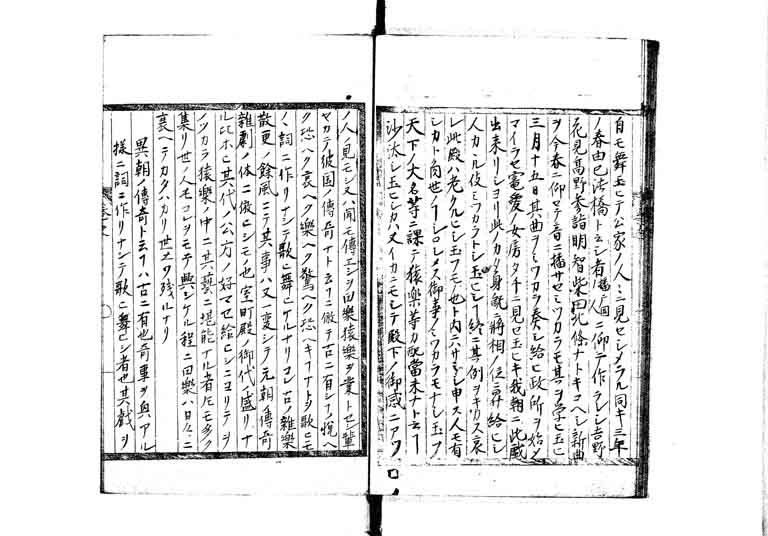 自モ舞玉ヒテ公家ノ人ニ見セシメラル同キ三年
ノ春由巳法橋ト云シ者 仰テ作ラシシ吉野
花見高野参詣明智柴田北條ナトキコヘシ新曲
ヲ今春ニ仰セテ音ニ播サセミツカラモ其ヲ学ヒ玉ヒ
三月十五日其曲ヲミツカラ奏シ給ヒ政所ヲ始メ
マイラセ寵愛ノ女房タチニ見セ玉ヒキ我朝ニ此戯
出来リシヨリ此カタ身就ニ将相ノ位ニ昇給ヒシ
人カル伎ミツカラトシ玉ヒシ 終ニ其例ヲキカス哀
レ此殿ハ老クルヒシ玉フモノ也ト内ニハサミシ申ス人モ有
シカト 世ノイシロシメス御事 ワカラモナシ玉フ
天下ノ大名等ニ課テ猿楽等カ配當米ナト云
沙汰シ玉ヒシカハ又イカニモシテ殿下ノ御感ニアツ
ノ人ノ見モシ又ハ聞モ傳エシヲ田樂猿樂ヲ業トセシ輩
マカテ彼国ノ傳奇ナト云 ニ倣テ古ニ有シ 悦ヘ
ク恐ヘク哀ヘク樂ヘク驚ヘク恐ヘキ ナトヲ歌ヒモ
ノ詞ニ作リナシテ歌ヒ舞ヒケルナリコレ古ノ雜樂
散更ノ餘風ニテ其事ハ又一変シテ元朝ノ傳奇
雜劇ノ体ニ倣ヒシモ也室町殿ノ御代ノ盛リナ
ル比ホヒ其代ノ公方ノ好マセ給ヒシニヨリテヲ
ノツカラ猿樂ノ中ニ其藝ニ堪能ナル者 モ多ク
集リ世ノ人モコレヲモテ興シケル程ニ田樂ハ日々ニ
衰ヘテカタハカリ世ニソ残ルナリ
異朝ノ傳奇ト云フハ古ニ有也奇事ヲ與アル
様ニ詞ニ作リナシテ歌ヒ舞ヒシ者也其戯ヲ